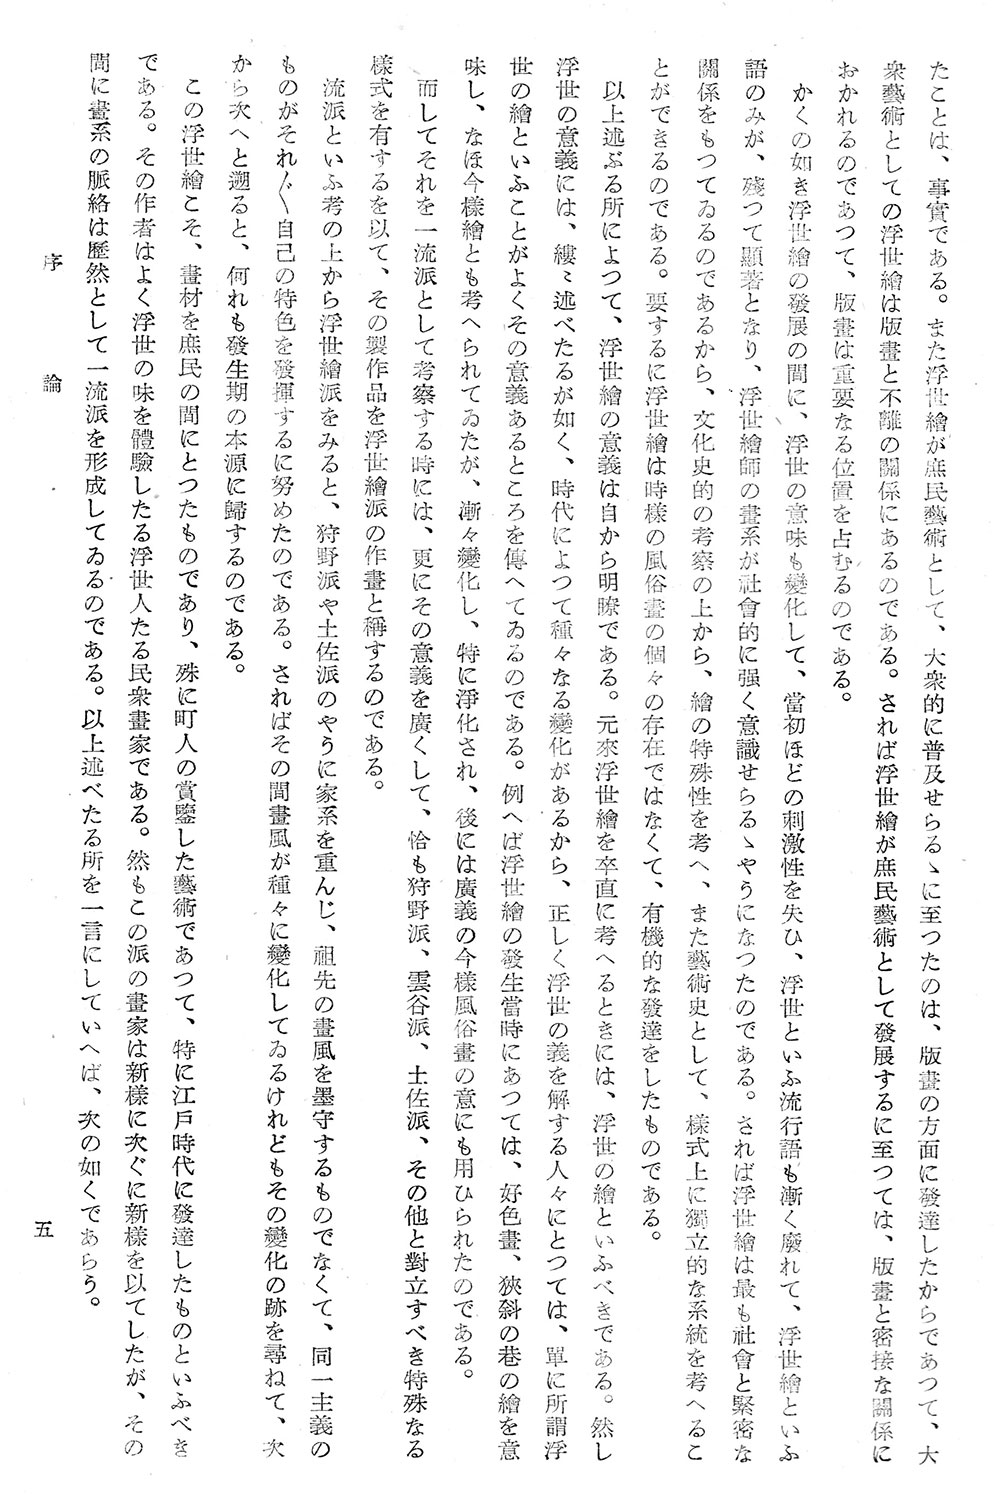 たことは、事實である。また浮世繪が庶民藝術として、大衆的に普及せらるゝに至つたのは、版畫の方面に發達したからであつて、大
衆藝術としての浮世繪は版畫と不離の關係にあるのである。されば浮世繪が庶民藝術として發展するに至つては、版畫と密接な關係に
おかれるのであつて、版畫は重要なる位置を占むるのである。
かくの如き浮世繪の發展の間に、浮世の意味も變化して、當初ほどの刺激性を失ひ、浮世といふ流行語も漸く廢れて、浮世繪といふ
語のみが、殘つて顯著となり、浮世繪師の畫系が社會的に强く意識せらるゝやうになつたのである。されば浮世繪は最も社會と緊密な
關係をもつてゐるのであるから、文化史的の考察の上から、繪の特殊性を考へ、また藝術史として、樣式上に獨立的な系統を考へるこ
とができるのである。要するに浮世繪は時樣の風俗畫の個々の存在ではなくて、有機的な發達をしたものである。
以上述ぶる所によつて、浮世繪の意義は自から明瞭である。元來浮世繪を卒直に考へるときには、浮世の繪といふべきである。然し
浮世の意義には、縷〻述べたるが如く、時代によつて種々なる變化があるから、正しく浮世の義を解する人々にとつては、單に所謂浮
世の繪といふことがよくその意義あるところを傳へてゐるのである。例へば浮世繪の發生當時にあつては、好色畫、狹斜の巷の繪を意
味し、なほ今樣繪とも考へられてゐたが、漸々變化し、特に淨化され、後には廣義の今樣風俗畫の意にも用ひられたのである。
而してそれを一流派として考察する時には、更にその意義を廣くして、恰も狩野派、雲谷派、土佐派、その他と對立すべき特殊なる
樣式を有するを以て、その製作品を浮世繪派の作畫と稱するのである。
流派といふ考の上から浮世繪派をみると、狩野派や土佐派のやうに家系を重んじ、祖先の畫風を墨守するものでなくて、同一主義の
ものがそれ〴〵自己の特色を發揮するに努めたのである。さればその間畫風が種々に變化してゐるけれどもその變化の跡を尋ねて、次
から次へと遡ると、何れも發生期の本源に歸するのである。
この浮世繪こそ、畫材を庶民の間にとつたものであり、殊に町人の賞鑒した藝術であつて、特に江戸時代に發達したものといふべき
である。その作者はよく浮世の味を體驗したる浮世人たる民衆畫家である。然もこの派の畫家は新樣に次ぐに新樣を以てしたが、その
間に畫系の脈絡は歷然として一流派を形成してゐるのである。以上述べたる所を一言にしていへば、次の如くであらう。
序論
五